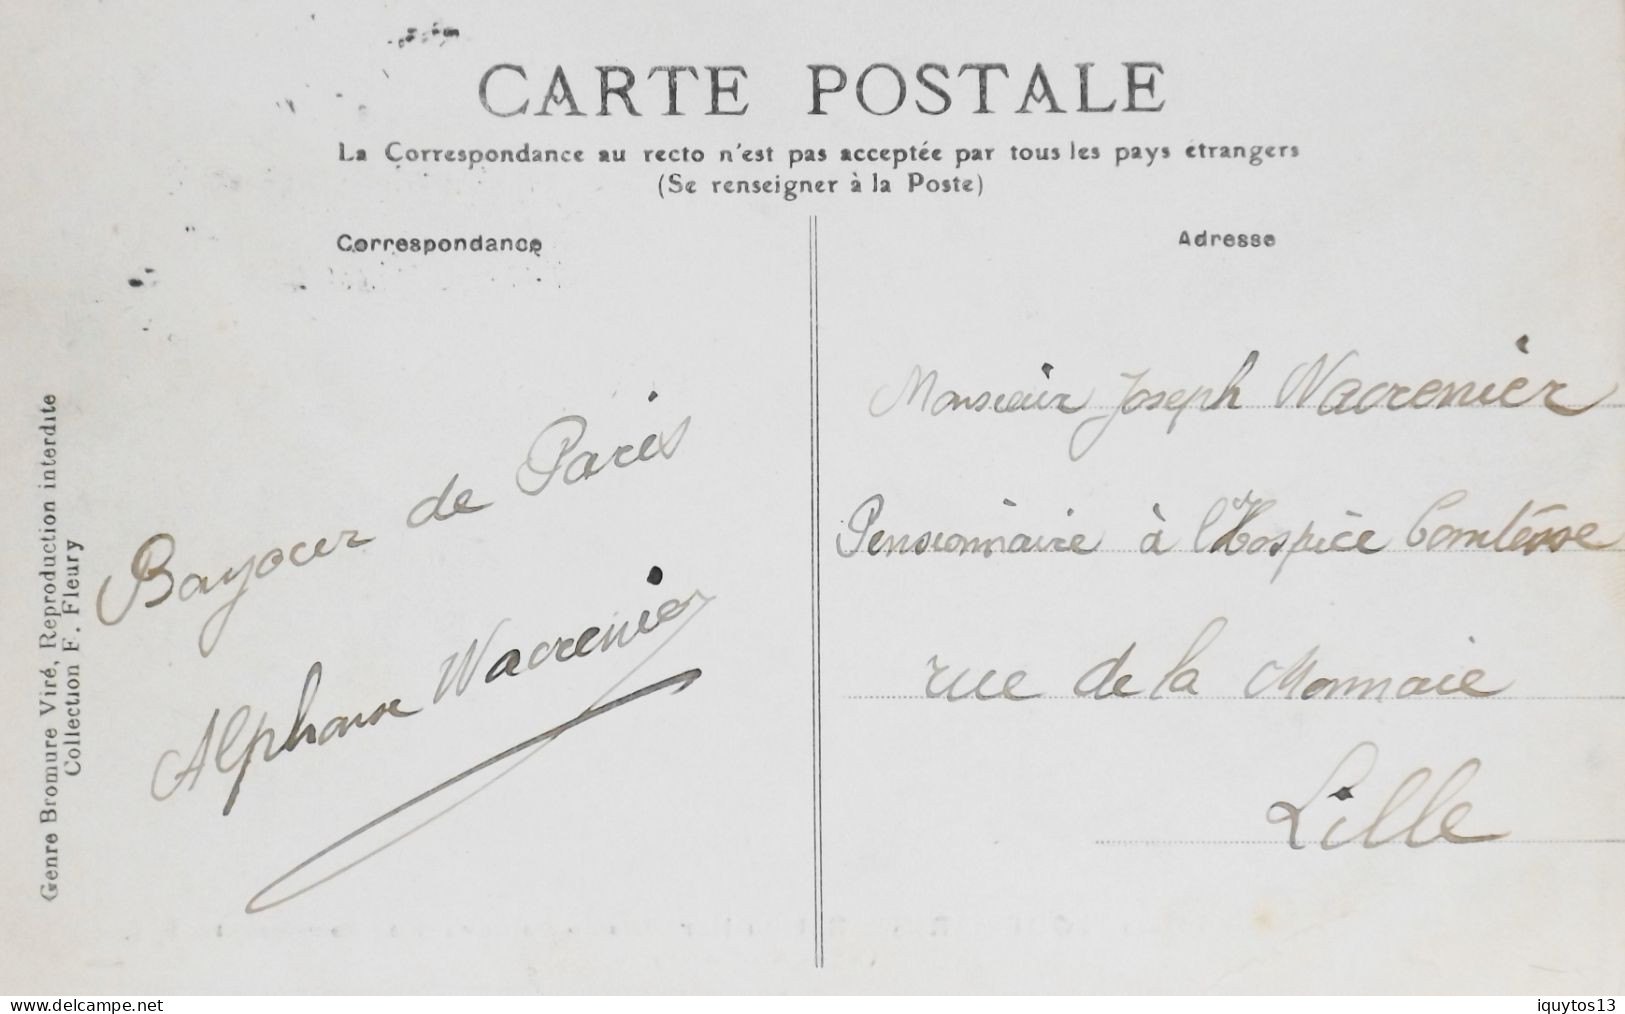 CARTE POSTALE
La Correspondance au recto n'est pas acceptée par tous les pays étrangers
(Se renseigner à la Poste)
Correspondance
Bonjour de Paris
Alphonse Wacrenier
Genre Bromure Viré, Reproduction interdite
Collection F. Fleury
Adresse
Monsieur Joseph Wacrenier
Pensionnaire à l'Hospice Comtesse
rue de la Monnaie
Lille
www.delcampe.net
iquytos13